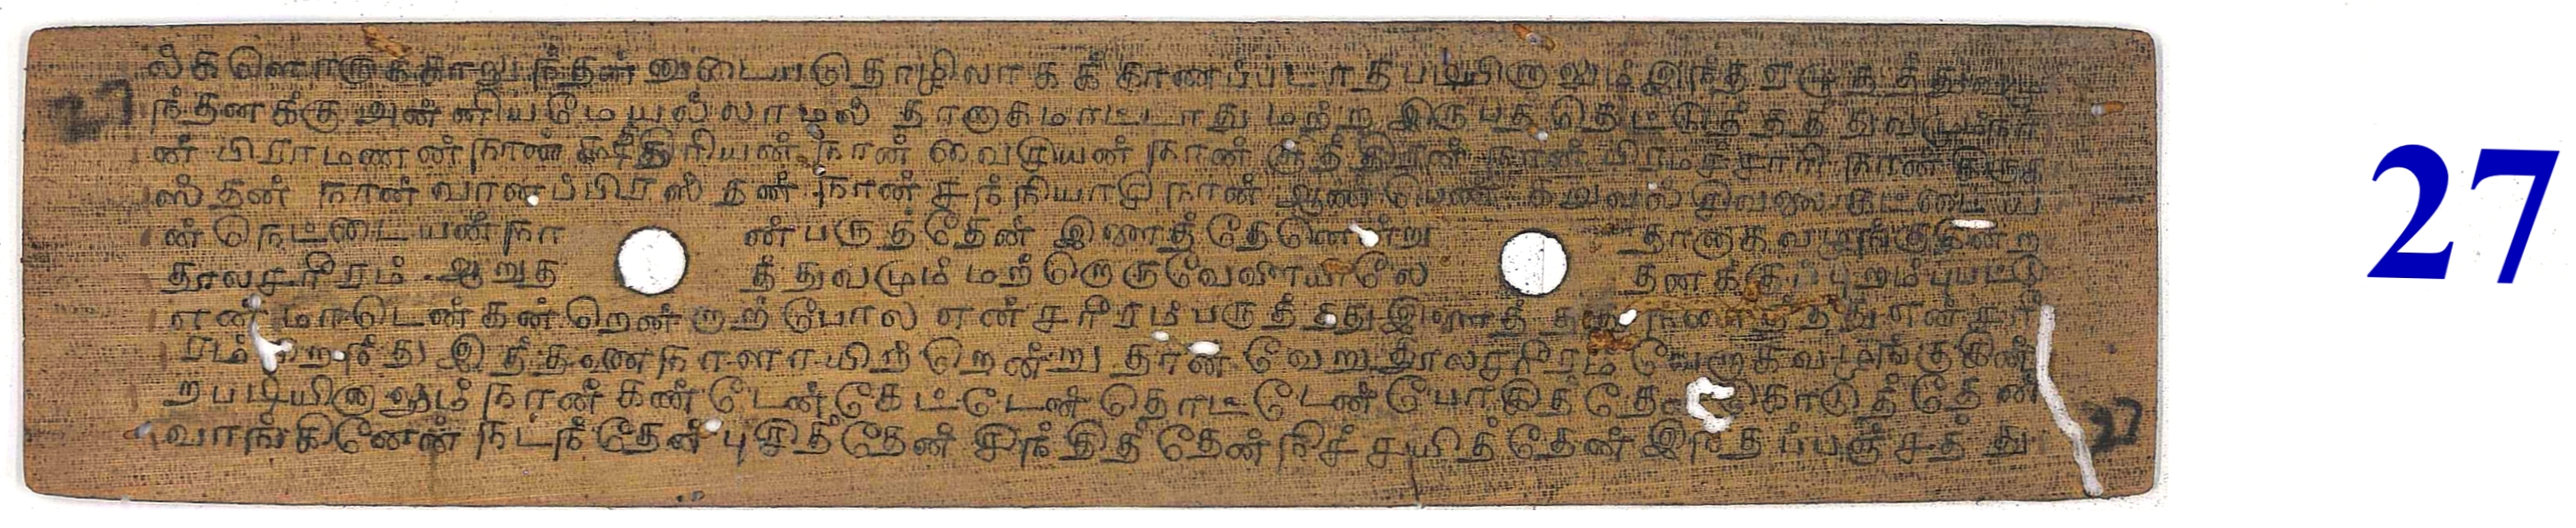 27
ல்கலொருக்காலுந்தன்னுடையதொழிலாகக் காணப்படாதபடியினாலும் இந்த ஏழு தத்துவமு
ந்தனக்கு அன்னியமேயல்லாமல் தானாகமாட்டாது மற்ற இருபத்தெட்டுத் தத்துவமும்நா
ன் பிராமணன் நான் க்ஷத்திரியன் நான் வைசியன் நான் சூத்திரன் நான் பிரமச்சாரி நான் கிருக
ஸ்தன் நான் வானப்பிரஸ்தன் நான் சந்நியாசி நான் ஆண் பெண்
ன் நெட்டையன்நா ன் பருத்தேன் இளைத்தேனென்று தானாக வழங்குகின்ற
தூலசரீரம் ஆறுத த்துவமும் மற்றொருவேளையிலே தனக்குப் புறம்புபட்டு
என் மாடென் கன்றென்றாற் போல என் சரீரம் பருத்தது இளைத்த என் சரீ
ரம் பிறந்து இத்தனைநாளாயிற்றென்று தான் வேறு தூலசரீரம் வேறாகவழங்குகின்
றபடியினாலும் நான் கண்டேன் கேட்டேன் தொட்டேன் போகித்தே கொடுத்தேன்
வாங்கினேன் நடந்தேன் புசித்தேன் சிந்தித்தேன் நிச்சயித்தேன் இந்தப்பஞ்சத்து
27
27